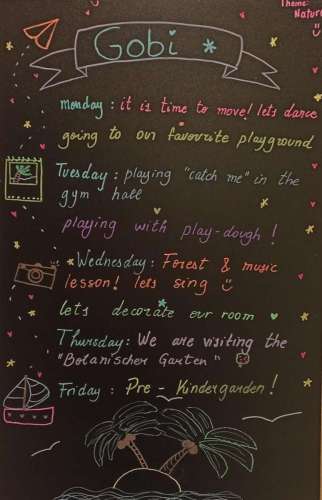 Theme:
Nature
Gobi
Monday: it is time to move! lets dance
going to our favourite playground
Tuesday: playing "catch me" in the
gym hall
playing with play-dough!
Wednesday: Forest & music
lesson! lets sing
lets decorate our room
Thursday: We are visiting the
"Botanischer Garten"
Friday: Pre - Kindergarden!